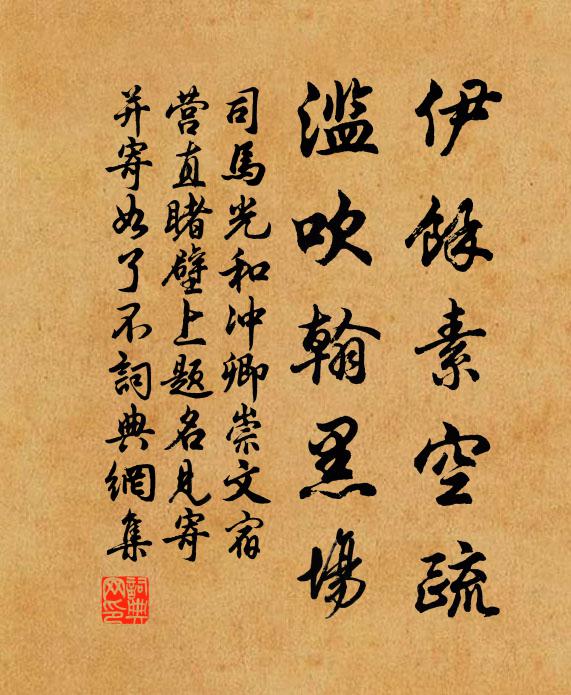 伊餘素空疏
滥吹翰墨場
司馬光和冲卿崇文宿
营直睹壁上题名見寄
并寄如了不詞典網集
詞典
网印